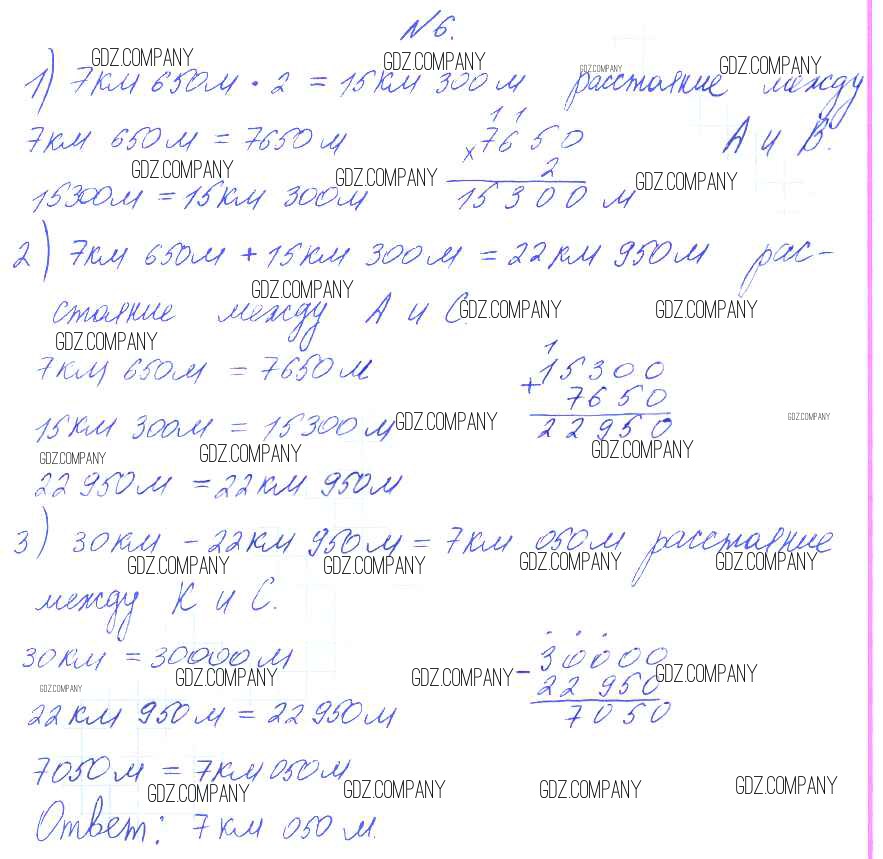 №6.
GDZ.COMPANY GDZ.COMPANY GDZ.COMPANY GDZ.COMPANY
1) 7км 650м · 2 = 15км 300м расстояние между
7км 650м = 7650м
А и В.
11
× 7650
2
15300 м
GDZ.COMPANY GDZ.COMPANY GDZ.COMPANY
15300м = 15км 300м
2) 7км 650м + 15км 300м = 22км 950м рас-
GDZ.COMPANY GDZ.COMPANY GDZ.COMPANY
стояние между А и С.
GDZ.COMPANY
7км 650м = 7650м
1
+ 15300
7650
22950
15км 300м = 15300м
GDZ.COMPANY GDZ.COMPANY
GDZ.COMPANY GDZ.COMPANY GDZ.COMPANY
22 950м = 22км 950м
3) 30км - 22км 950м = 7км 050м расстояние
GDZ.COMPANY GDZ.COMPANY GDZ.COMPANY GDZ.COMPANY
между К и С.
30км = 30000м
- 30000
22 950
7050
GDZ.COMPANY GDZ.COMPANY GDZ.COMPANY
GDZ.COMPANY
22км 950м = 22950м
7050м = 7км 050м
GDZ.COMPANY GDZ.COMPANY GDZ.COMPANY GDZ.COMPANY
Ответ: 7км 050м.